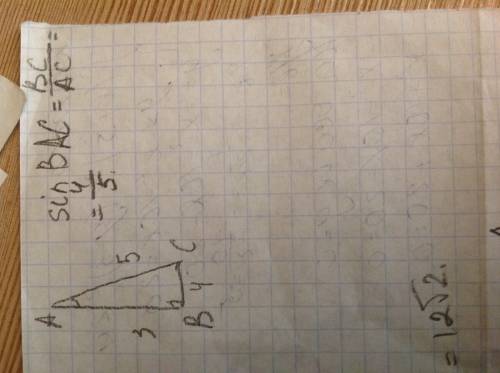 sin BAC = BC/AC =
= 4/5.
A
3
5
B
4
C
= 12√2.